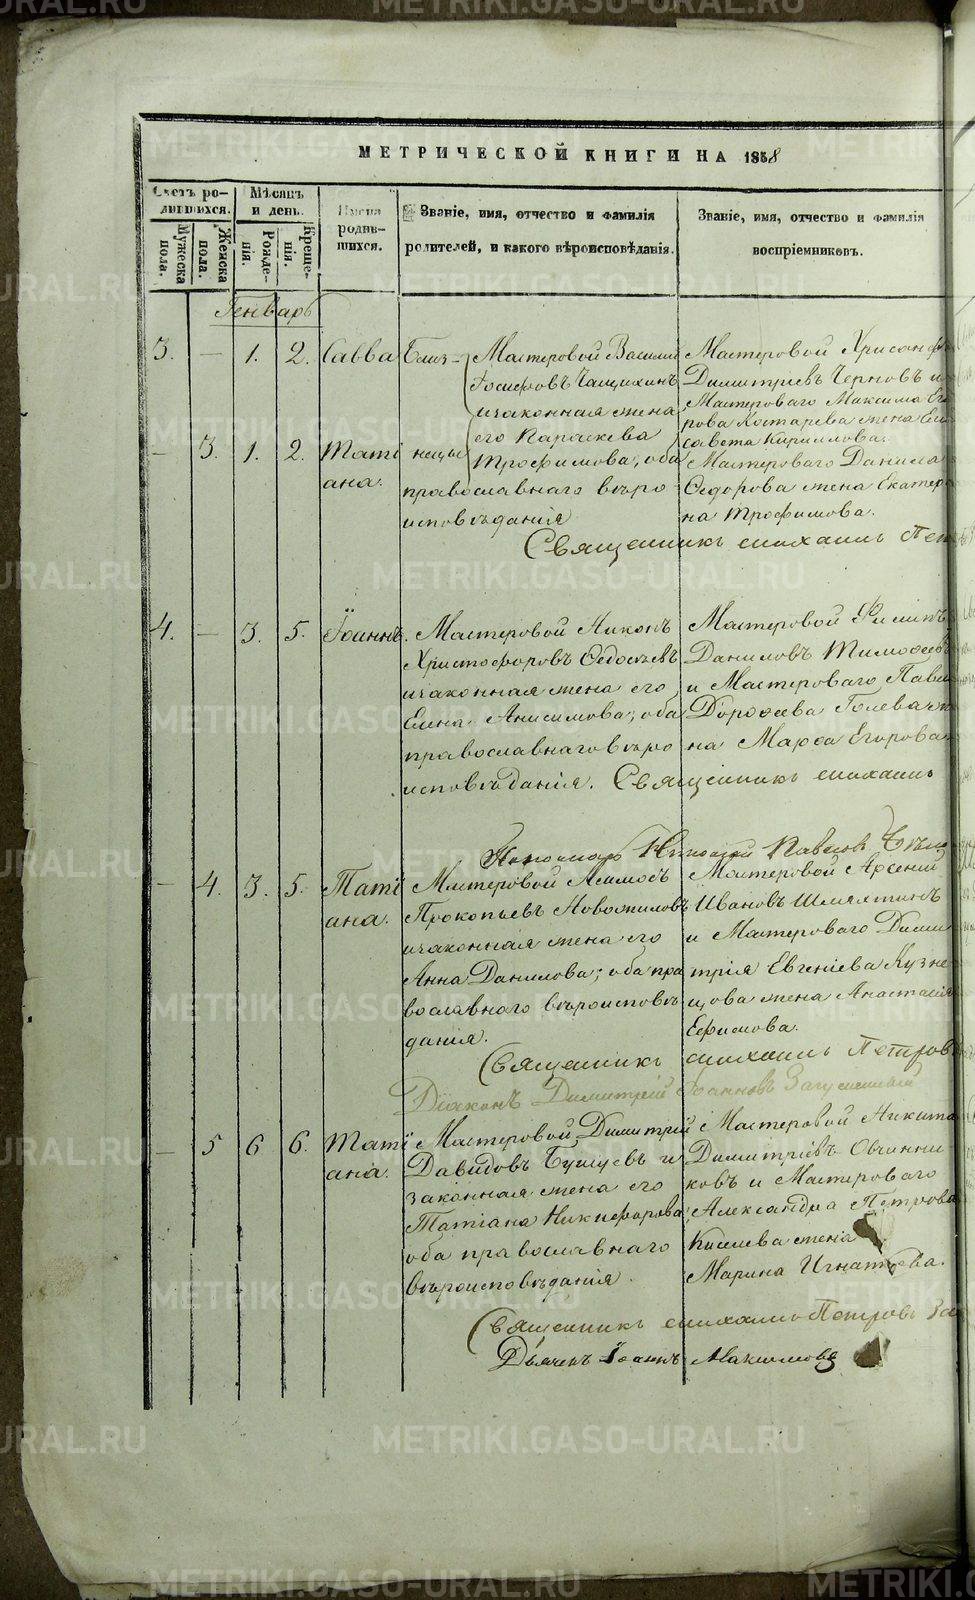 МЕТРИЧЕСКОЙ КНИГИ НА 1858
Счетъ ро-
дившихся.
Мужеска
пола.
Женска
пола.
Мѣсяцъ
и день.
Рожде-
нія.
Креще-
нія.
Имена
родив-
шихся.
Званіе, имя, отчество и фамилія
родителей, и какого вѣроисповѣданія.
Званіе, имя, отчество и фамилія
воспріемниковъ.
Генварь
3. — 1. 2. Савва Близ-
— 3. 1. 2. Таті
ана.
нецы
Мастеровой Василій
Іосифовъ Чащихинъ
и законная жена
его Параскева
Трофимова, оба
православнаго вѣро
исповѣданія
Мастеровой Хрисанф
Димитріевъ Черновъ и
Мастероваго Максима Его
рова Костарева жена Ели
савета Кириллова.
Мастероваго Данила
Ѳедорова жена Екатери
на Трофимова.
Священникъ Михаилъ Пет
4. — 3. 5. Іоаннъ.
Мастеровой Никонъ
Христофоровъ Ѳедосѣевъ
и законная жена его
Елена Анисимова, оба
православнаго вѣро
исповѣданія.
Мастеровой Филипъ
Даниловъ Тимоѳеевъ
и Мастероваго Павла
Дороѳеева Голева же
на Марѳа Егорова
Священникъ Михаилъ
Пономарь Николай Павловъ
— 4. 3. 5. Таті
ана.
Мастеровой
Прокопьевъ Новожиловъ
и законная жена его
Анна Данилова; оба пра
вославнаго вѣроисповѣ
данія.
Мастеровой Арсеній
Ивановъ Шляхтинъ
и Мастероваго Дими
трія Евгеніева Кузне
цова жена Анастасія
Ефимова.
Священникъ Михаилъ Петровъ
Діаконъ Димитрій Іоанновъ
— 5 6 6. Таті
ана.
Мастеровой Димитрій
Давидовъ Бушуевъ и
законная жена его
Татіана Никифорова,
оба православнаго
вѣроисповѣданія.
Мастеровой Никита
Димитріевъ Овчинни
ковъ и Мастероваго
Александра Петрова
Киселева жена
Марина Игнатьева.
Священникъ Михаилъ Петровъ За
Дьячекъ Іоаннъ Максимовъ
METRIKI.GASO-URAL.RU